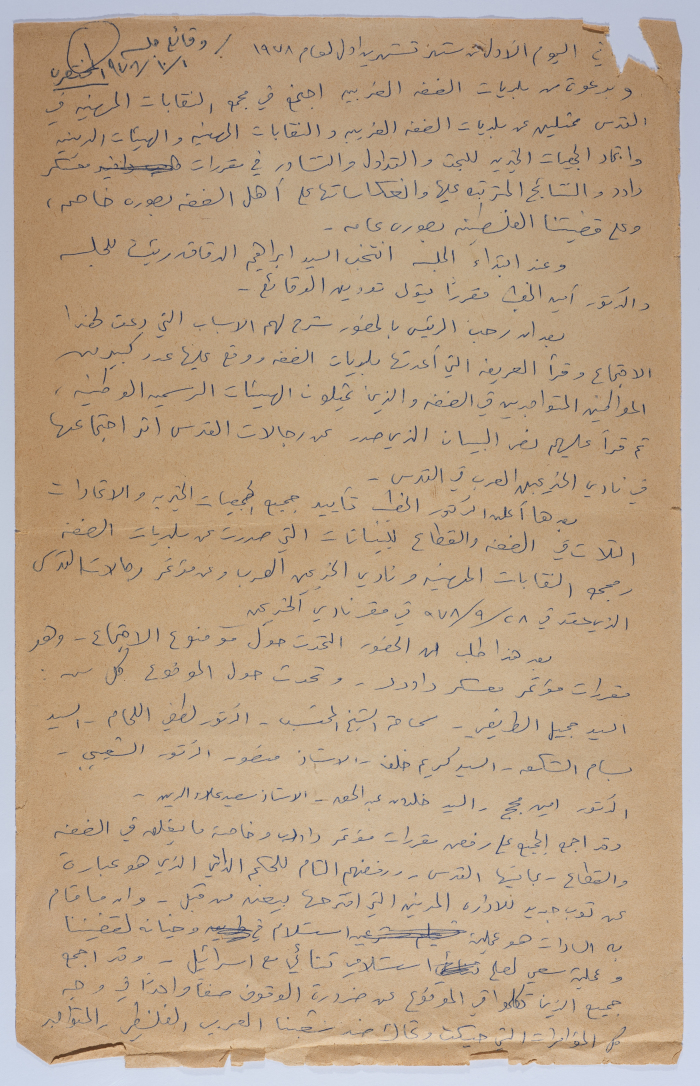 وقائع جلسة
٩٧٨/١٠/١
في اليوم الاول من شهر تشرين اول لعام ١٩٧٨
وبدعوة من بلديات الضفه الغربيه اجتمع في مجمع النقابات المهنيه في
القدس ممثلين عن بلديات الضفه الغربيه و النقابات المهنيه و الهيئات الدينيه
واتحاد الجمعيات الخيريه للبحث و التداول والتشاور في مقررات معسكر
داود و النتائج المترتبه عليها وانعكاساتها على أهل الضفه بصوره خاصه ،
وعلى قضيتنا الفلسطينيه بصوره عامه -
وعند ابتداء الجلسه انتخب السيد ابراهيم الدقاق رئيسا للجلسه
والدكتور أمين الخطيب مقررا يتولى تدوين الوقائع -
بعد ان رحب الرئيس بالحضور شرح لهم الاسباب التي دعت لهذا
الاجتماع وقرأ العريضه التي أعدتها بلديات الضفه ووقع عليها عدد كبير من
المواطنين المتواجدين في الضفه والذين يمثلون الهيئات الرسميه الوطنيه ،
ثم قرأ عليهم نص البيان الذي صدر عن رجالات القدس اثر اجتماعها
في نادي الخريجين العرب في القدس -
بعدها أعلن الدكتور الخطيب تأييد جميع الجمعيات الخيريه والاتحادات
الثلاث في الضفه والقطاع للبيانات التي صدرت عن بلديات الضفه
ومجمع النقابات المهنيه ونادي الخريجين العرب وعن مؤتمر رجالات القدس
الذي عقد في ٩٧٨/٩/٢٨ في مقر نادي الخريجين
بعد هذا طلب من الحضور التحدث حول موضوع الاجتماع - وهو
مقررات مؤتمر معسكر داوود - وتحدث حول الموضوع كل من :
السيد جميل الطريفي - سماحة الشيخ المحتسب - الدكتور لطفي اللحام - السيد
بسام الشكعه - السيد كريم خلف - الاستاذ منصور - الدكتور الشعيبي -
الدكتور امين مجج - السيد خلدون عبد الحق - الاستاذ سعيد علاء الدين -
وقد اجمع الجميع على رفض مقررات مؤتمر داوود وخاصة ما يتعلق في الضفه
والقطاع - بما فيها القدس - ورفضهم التام للحكم الذاتي الذي هو عبارة
عن ثوب جديد للاداره المدنيه التي اقترحها بيغن من قبل - وان ما قام
به السادات هو عمليه استلام في وخيانه لقضيتنا
و عملية سعي لصلح استسلامي ثنائي مع اسرائيل - وقد اجمع
جميع الذين تكلموا في الموضوع عن ضرورة الوقوف صفا واحدا في وجه
كل المؤامرات التي حيكت وتحاك ضد شعبنا العربي الفلسطيني المتواجد